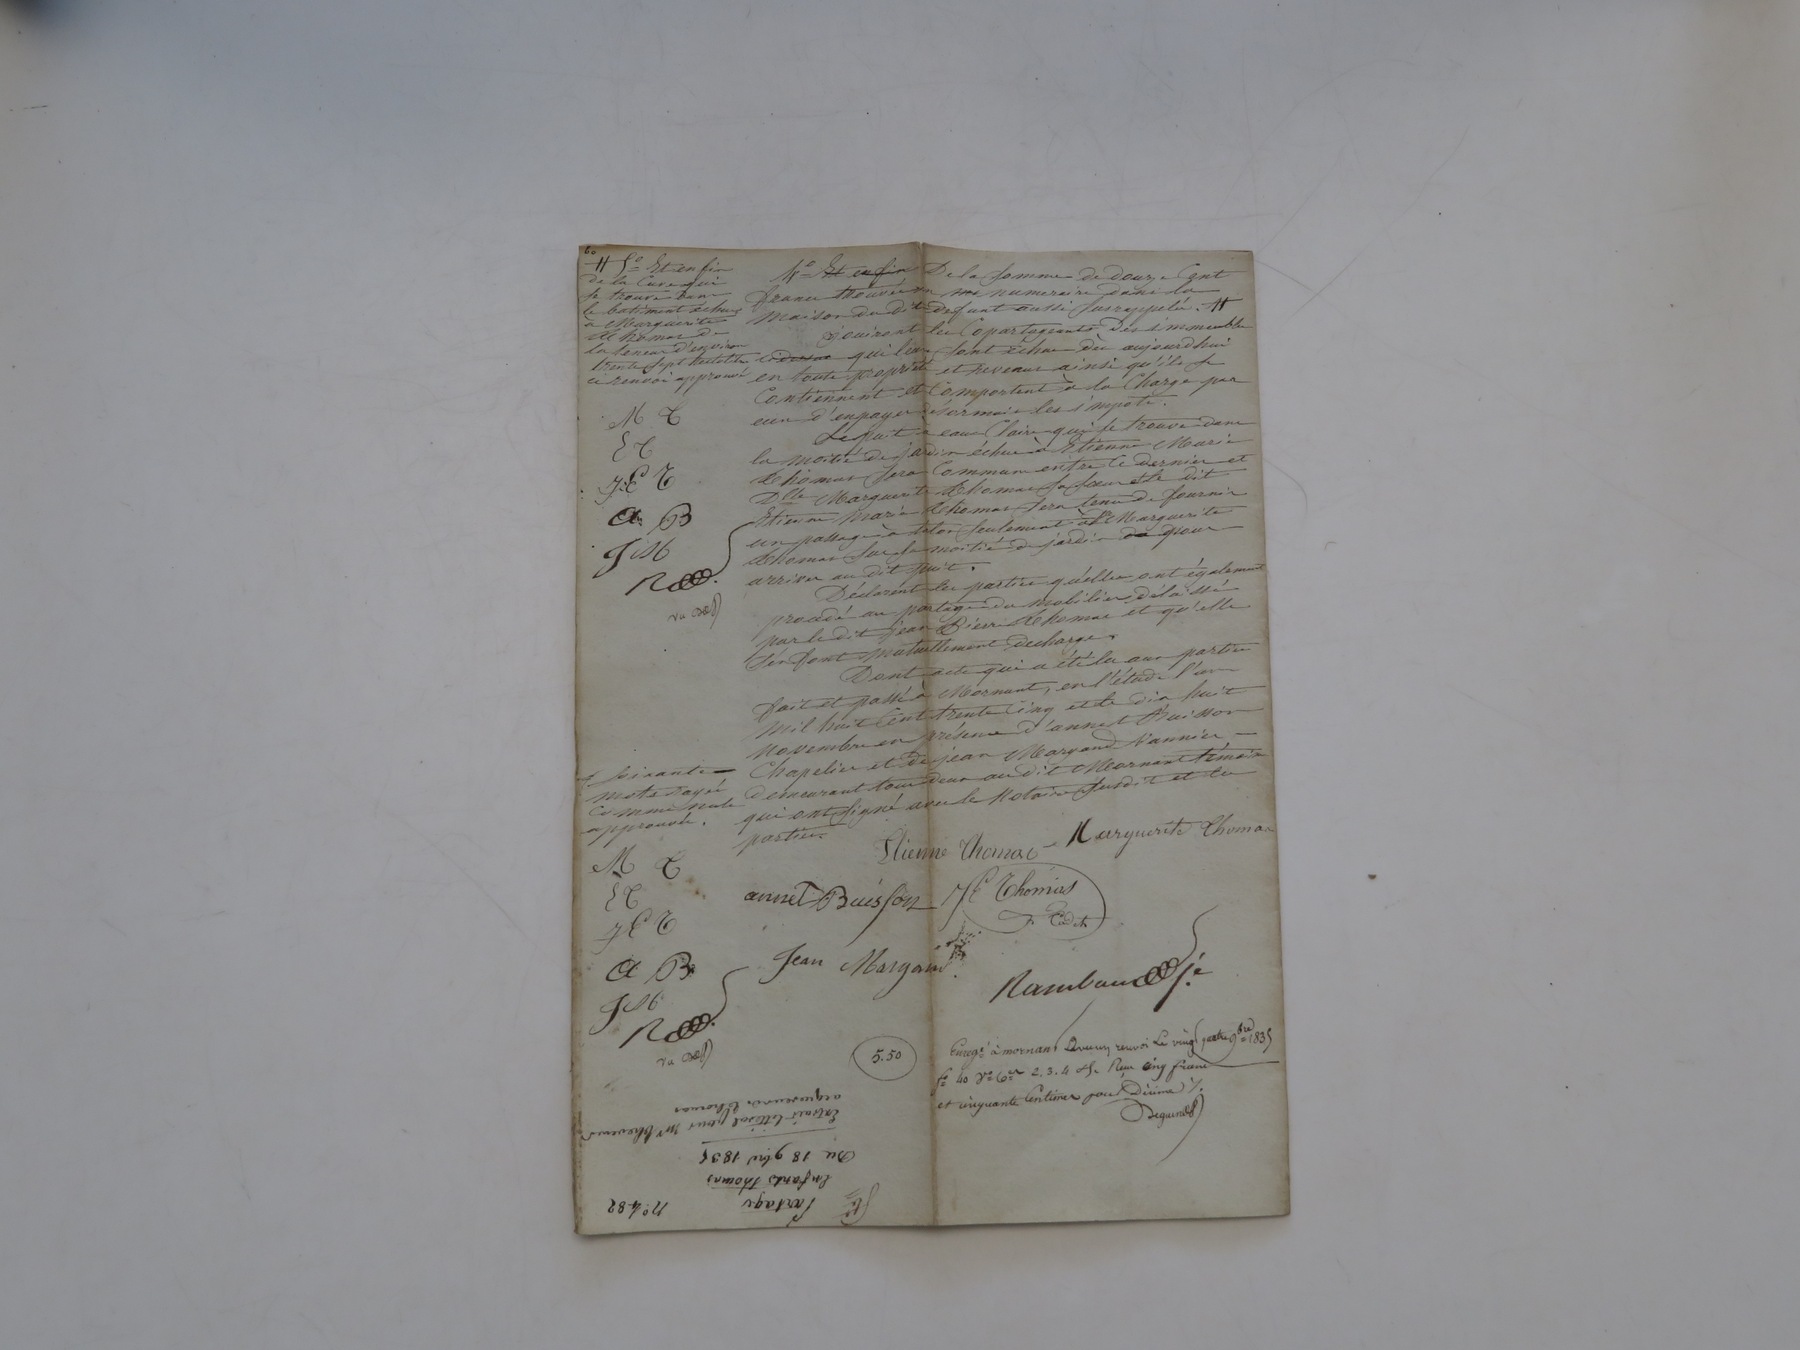 60
4° Et enfin De la Somme de douze Cent
francs trouvée en numeraire dans la
maison du dit défunt aussi Susrappelée. #
Jouiront les Copartageants Des immeubles
qui leur sont échus dès aujourdhui
en toute propriété et revenus ainsi qu'ils se
Contiennent et Comportent à la Charge par
eux d'en payer désormais les impots.
Le puit à eau Claire qui se trouve dans
la moitié de jardin échue à Etienne Marie
Thomas sera Commun entre Ce dernier et
Dlle Marguerite Thomas sa sœur et le dit
Etienne Marie Thomas sera tenu de fournir
un passage à talon seulement à Marguerite
Thomas sur la moitié de jardin pour
arriver au dit puit.
Déclarent les parties qu'elles ont également
procédé au partage du mobilier délaissé
par le dit jean Pierre Thomas et qu'elles
s'en font mutuellement décharge.
Dont acte qui a été lu aux parties
fait et passé à Mornant, en l'étude l'an
mil huit Cent trente Cinq et le dix huit
Novembre en présence d'annet Buisson
Chapelier et de jean Margand Vannier
demeurant tous deux au dit Mornant témoins
qui ont signé avec le Notaire susdit et les
parties.
# 5° Et enfin
de la Cuve qui
se trouve dans
le batiment échu
à Marguerite
Thomas de
la teneur d'environ
trente sept hectolitres
ci renvoi approuvé
M T
E T
J P T
A B
J M
R
vu
Soixante
mots rayés
Comme nuls
approuvé.
M T
E T
J P T
A B
J M
R
vu
Etienne Thomas Marguerite Thomas
annet Buisson JP Thomas
Cadet
Jean Margand
Rambaud je
5.50
Enregé à mornant avec un renvoi Le vingt quatre 9bre 1835
fo 40 Vo Ces 2.3.4 &c Reçu Cinq francs
et cinquante Centimes pour Décime %.
No 482
Partage
Enfants Thomas
Du 18 9bre 1835
Extrait littéral pour Mr
acquéreur de Thomas